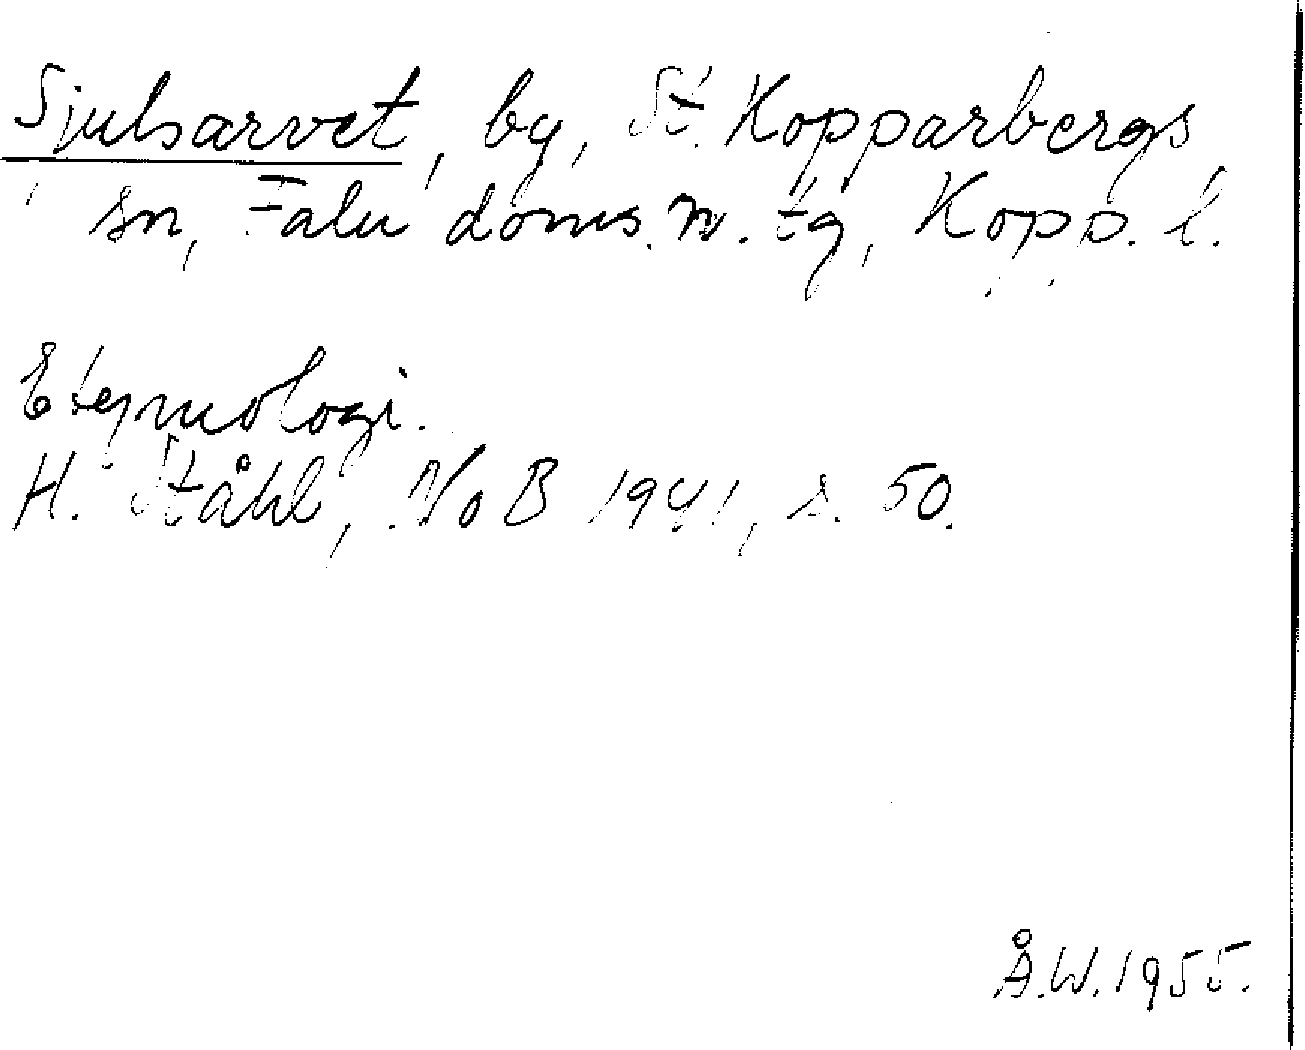 Sjulsarvet, by, St. Kopparbergs
sn, Falu doms. n. tg, Kopp. l.
Etymologi.
H. Ståhl, NoB 1941, s. 50.
Å.W. 1955.